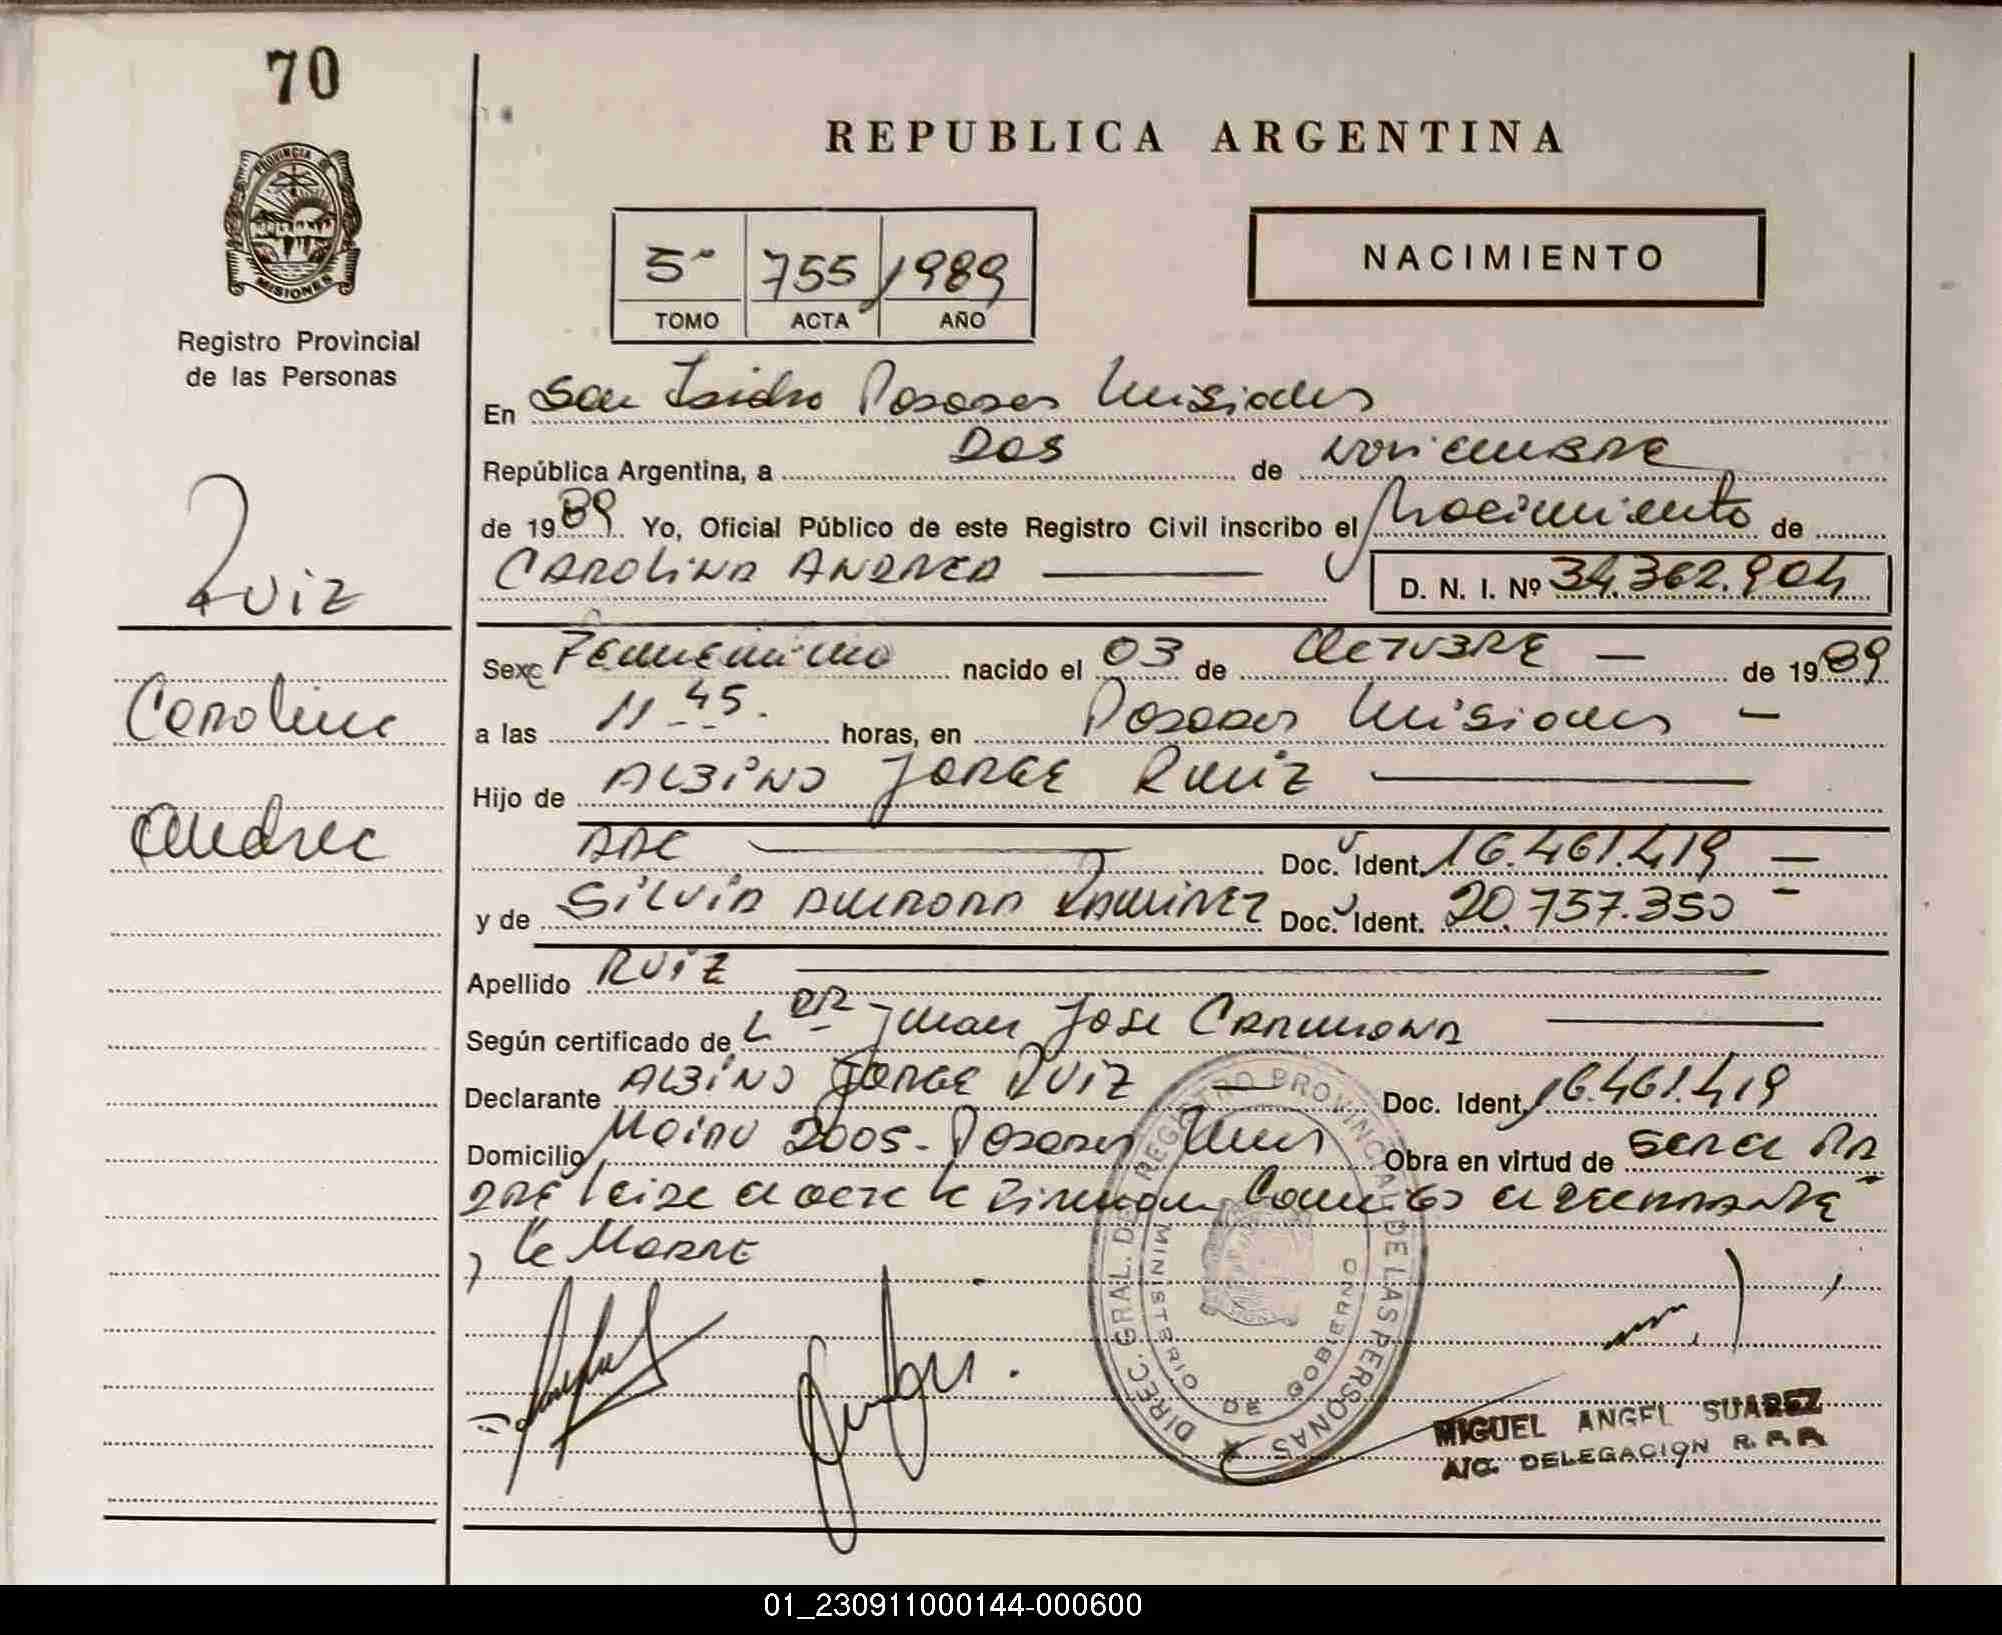 70
PROVINCIA DE
MISIONES
Registro Provincial
de las Personas
Ruiz
Carolina
Andrea
REPUBLICA ARGENTINA
5º 755 1989
TOMO ACTA AÑO
NACIMIENTO
En San Isidro Posadas Misiones
República Argentina, a DOS de NOViEMBRE
de 1989 Yo, Oficial Público de este Registro Civil inscribo el Nacimiento de
CAROLiNA ANDREA
D. N. I. Nº 34.362.904
Sexo Femenino nacido el 03 de OCTUBRE de 1989
a las 11-45. horas, en Posadas Misiones
Hijo de ALBiNO JORGE RUiZ
Doc. Ident. 16.461.419
y de SiLViA AURORA RAMIREZ Doc. Ident. 20.757.350
Apellido RUiZ
Según certificado de L DR Juan Jose CARMONA
Declarante ALBiNO JORGE RUiZ Doc. Ident. 16.461.419
Domicilio 2005- Posadas Mnes Obra en virtud de SER el PA
DRE Leida el acta la FIRMAN Conmigo el DECLARANTE
y la MADRE
DIREC. GRAL. DEL REGISTRO PROVINCIAL DE LAS PERSONAS
MINISTERIO DE GOBIERNO
MIGUEL ANGEL SUAREZ
A/C. DELEGACION R.P.P.
01_230911000144-000600